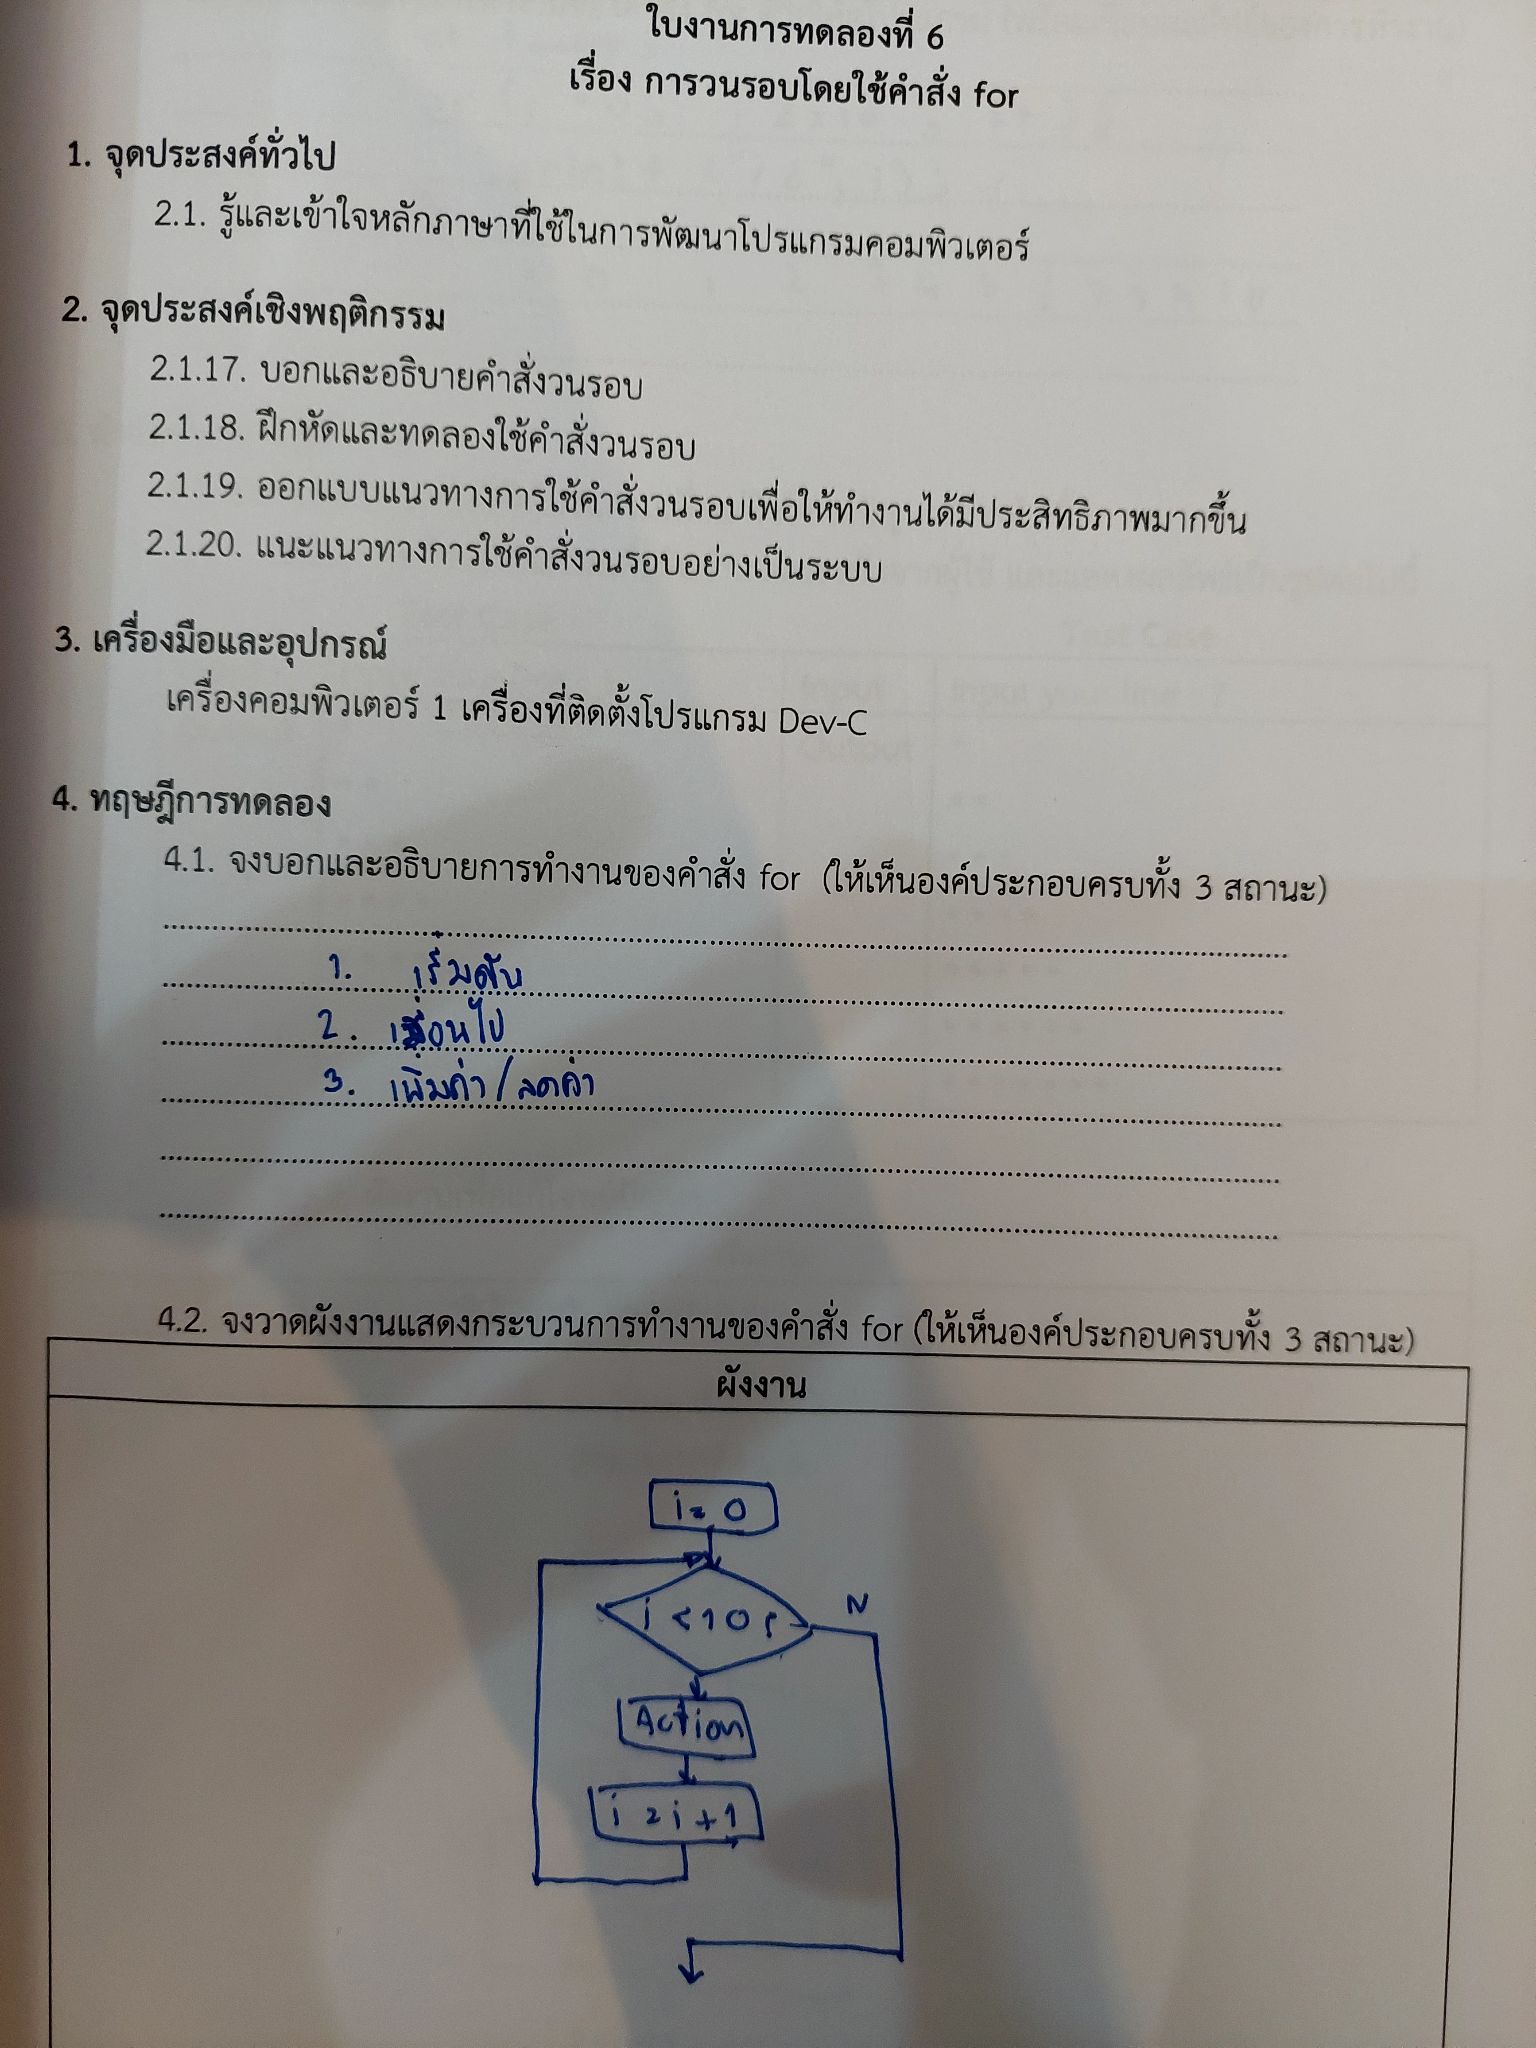 ใบงานการทดลองที่ 6
เรื่อง การวนรอบโดยใช้คำสั่ง for
1. จุดประสงค์ทั่วไป
2.1. รู้และเข้าใจหลักภาษาที่ใช้ในการพัฒนาโปรแกรมคอมพิวเตอร์
2. จุดประสงค์เชิงพฤติกรรม
2.1.17. บอกและอธิบายคำสั่งวนรอบ
2.1.18. ฝึกหัดและทดลองใช้คำสั่งวนรอบ
2.1.19. ออกแบบแนวทางการใช้คำสั่งวนรอบเพื่อให้ทำงานได้มีประสิทธิภาพมากขึ้น
2.1.20. แนะแนวทางการใช้คำสั่งวนรอบอย่างเป็นระบบ
3. เครื่องมือและอุปกรณ์
เครื่องคอมพิวเตอร์ 1 เครื่องที่ติดตั้งโปรแกรม Dev-C
4. ทฤษฎีการทดลอง
4.1. จงบอกและอธิบายการทำงานของคำสั่ง for (ให้เห็นองค์ประกอบครบทั้ง 3 สถานะ)
1. เริ่มต้น
2. เงื่อนไข
3. เพิ่มค่า/ลดค่า
4.2. จงวาดผังงานแสดงกระบวนการทำงานของคำสั่ง for (ให้เห็นองค์ประกอบครบทั้ง 3 สถานะ)
ผังงาน
i = 0
i < 10
N
Action
i = i + 1